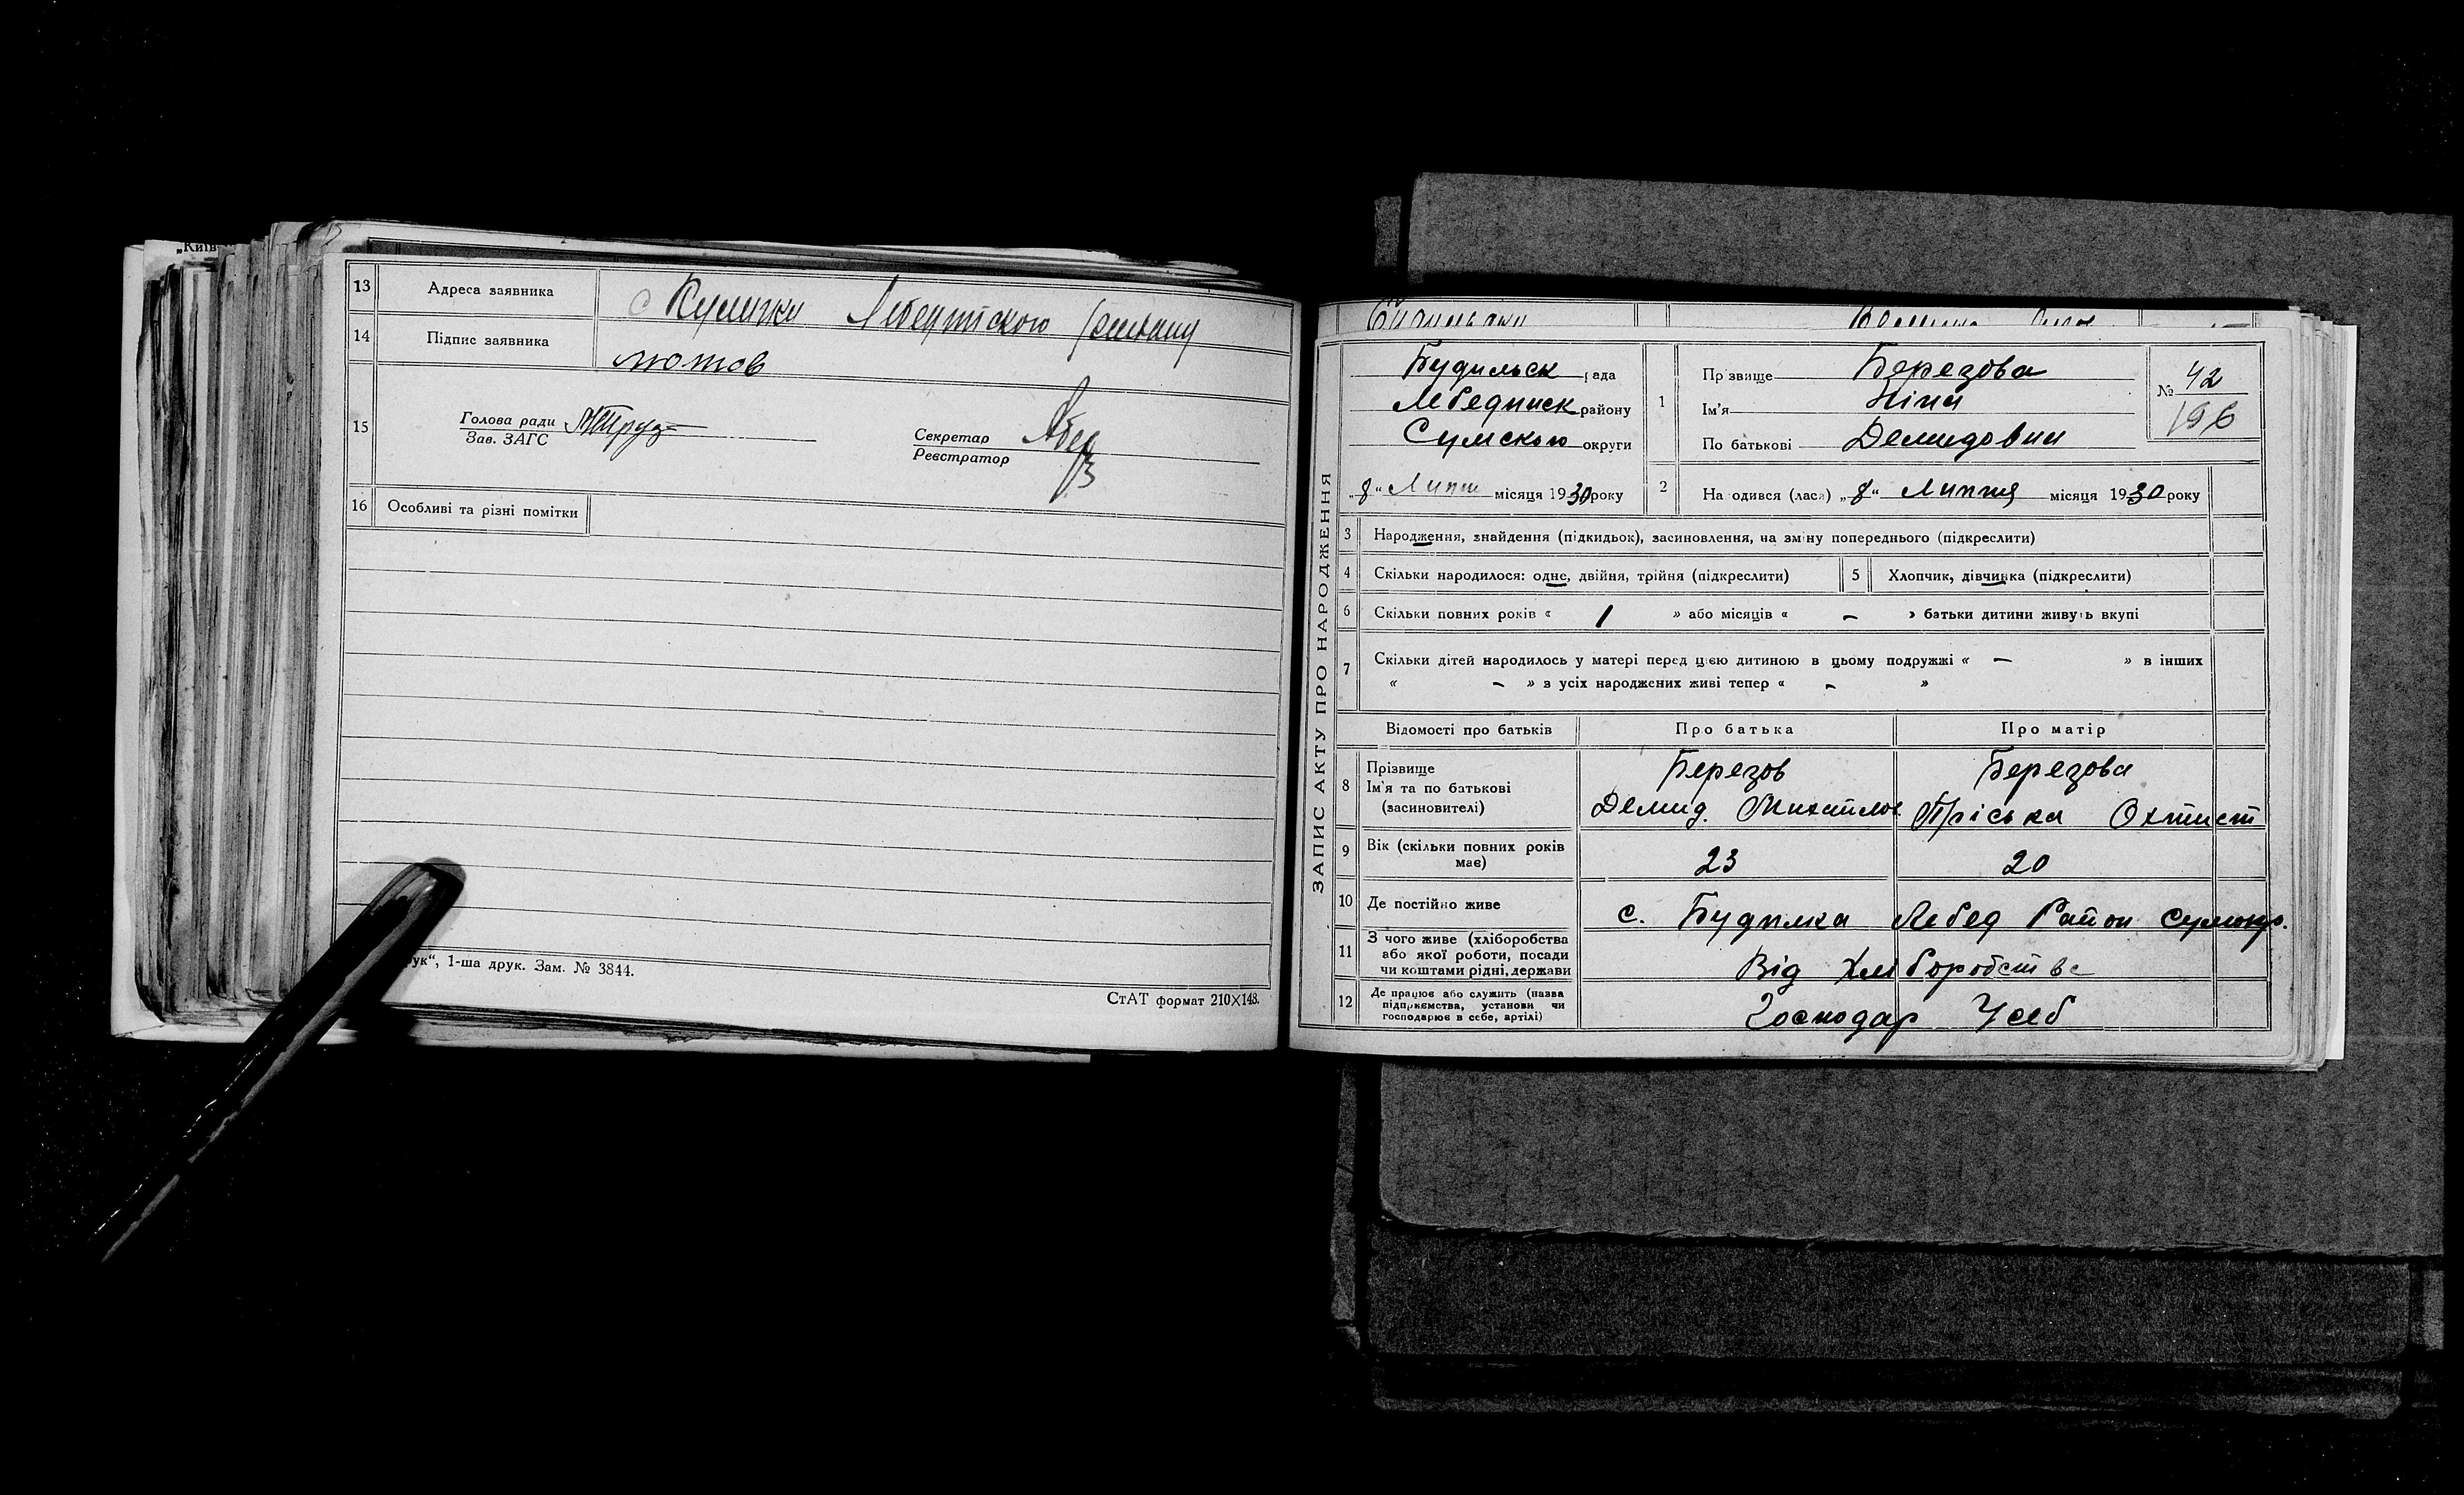 „Київ
13 Адреса заявника с Кулички Лебединського району
14 Підпис заявника
15 Голова ради
Зав. ЗАГС
Секретар
Реєстратор
16 Особливі та різні помітки
ук“, 1-ша друк. Зам. № 3844.
СтАТ формат 210Х148.
ЗАПИС АКТУ ПРО НАРОДЖЕННЯ
Будильськ рада
Лебединськ району
Сумського округи
„8“ Липня місяця 1930 року
1 Прізвище Березова
Ім'я Ніна
По батькові Демидовни
№ 42
196
2 На одився (лася) „8“ Липня місяця 1930 року
3 Народження, знайдення (підкидьок), засиновлення, на зміну попереднього (підкреслити)
4 Скільки народилося: одне, двійня, трійня (підкреслити) 5 Хлопчик, дівчинка (підкреслити)
6 Скільки повних років « 1 » або місяців « – » батьки дитини живуть вкупі
7 Скільки дітей народилось у матері перед цією дитиною в цьому подружжі « – » в інших
« – » з усіх народжених живі тепер « – »
Відомості про батьків Про батька Про матір
8 Прізвище Березов Березова
Ім'я та по батькові
(засиновителі) Демид. Михайлов. Пріська Охтист
9 Вік (скільки повних років
має) 23 20
10 Де постійно живе с. Будилка Лебед Район Сумокр.
11 З чого живе (хліборобства
або якої роботи, посади
чи коштами рідні, держави Від Хліборобства
12 Де працює або служить (назва
підприємства, установи чи
господарює в себе, артілі) Господар Усеб